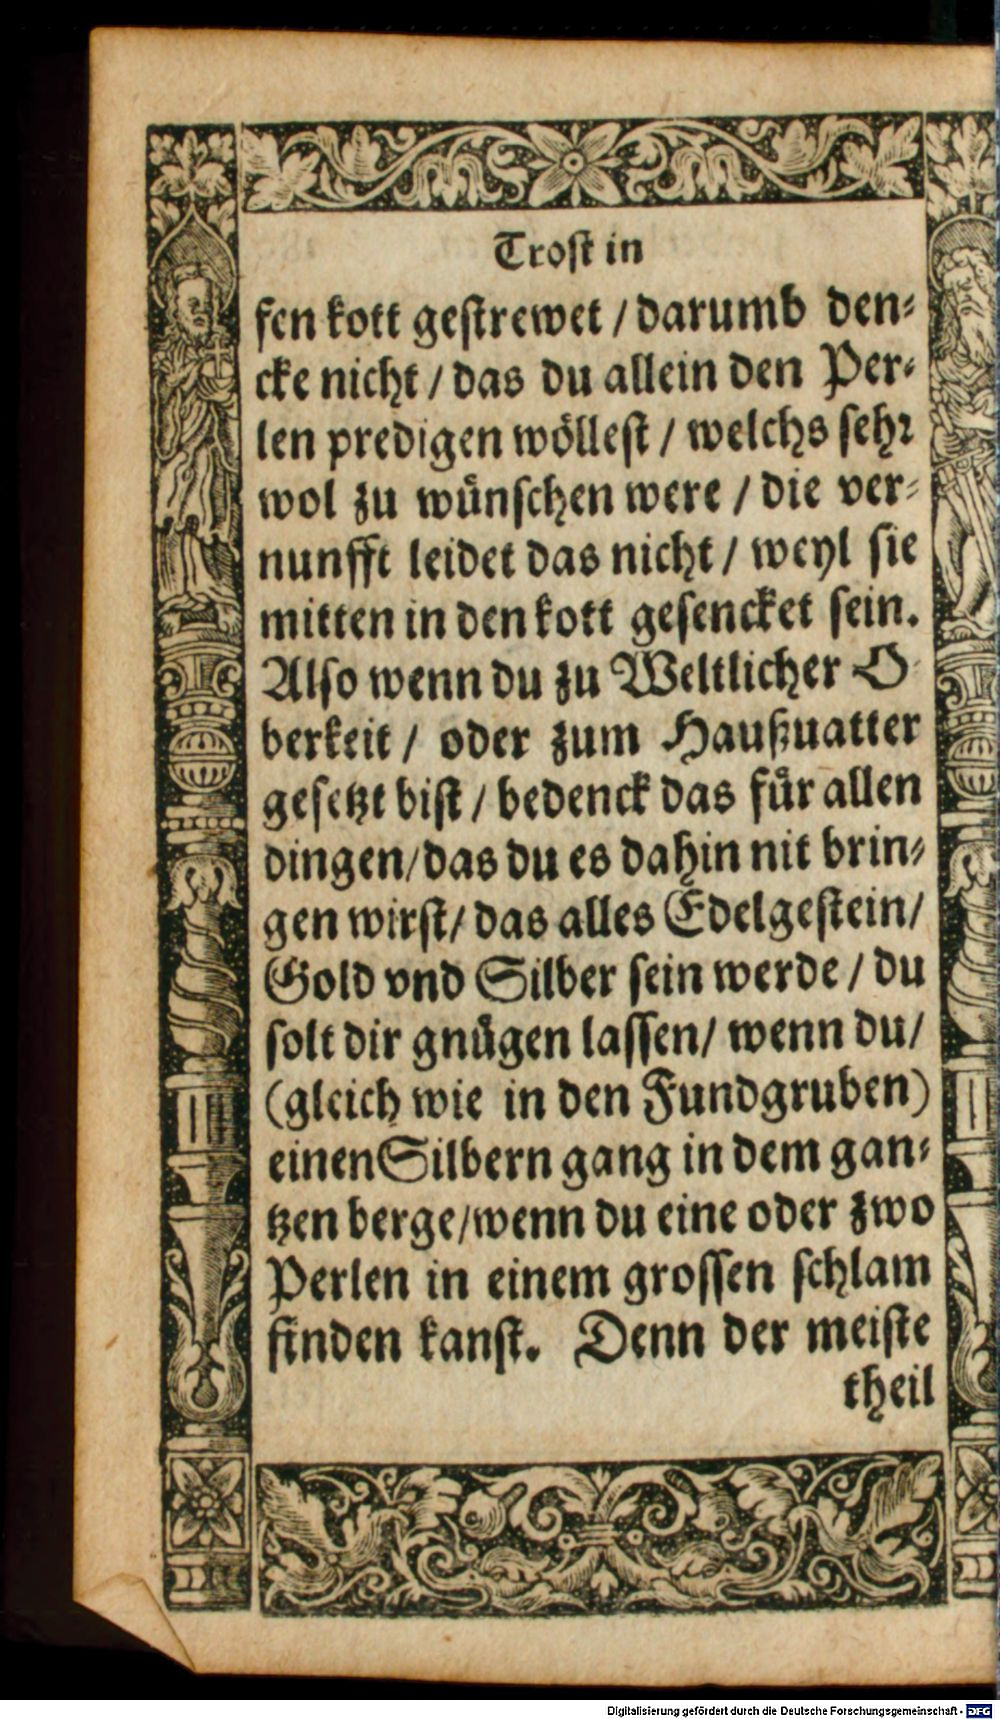 Trost in
fen kott gestrewet / darumb den⸗
cke nicht / das du allein den Per⸗
len predigen wöllest / welchs sehr
wol zu wünschen were / die ver⸗
nunfft leidet das nicht / weyl sie
mitten in den kott gesencket sein.
Also wenn du zu Weltlicher O⸗
berkeit / oder zum Haußuatter
gesetzt bist / bedenck das für allen
dingen / das du es dahin nit brin⸗
gen wirst / das alles Edelgestein /
Gold vnd Silber sein werde / du
solt dir gnügen lassen / wenn du /
(gleich wie in den Fundgruben)
einen Silbern gang in dem gan⸗
tzen berge / wenn du eine oder zwo
Perlen in einem grossen schlam
finden kanst. Denn der meiste
theil
Digitalisierung gefördert durch die Deutsche Forschungsgemeinschaft - DFG